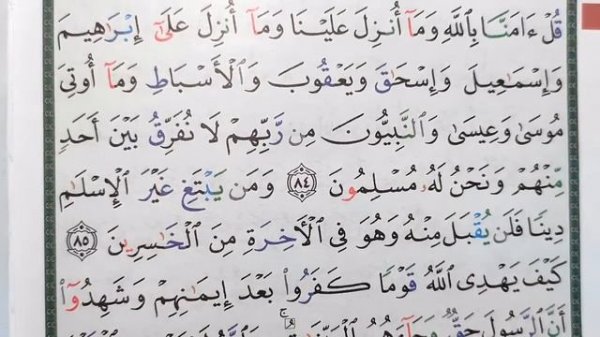 قُلْ ءَامَنَّا بِٱللَّهِ وَمَآ أُنزِلَ عَلَيْنَا وَمَآ أُنزِلَ عَلَىٰٓ إِبْرَٰهِيمَ
وَإِسْمَٰعِيلَ وَإِسْحَٰقَ وَيَعْقُوبَ وَٱلْأَسْبَاطِ وَمَآ أُوتِىَ
مُوسَىٰ وَعِيسَىٰ وَٱلنَّبِيُّونَ مِن رَّبِّهِمْ لَا نُفَرِّقُ بَيْنَ أَحَدٍ
مِّنْهُمْ وَنَحْنُ لَهُۥ مُسْلِمُونَ ٨٤ وَمَن يَبْتَغِ غَيْرَ ٱلْإِسْلَٰمِ
دِينًا فَلَن يُقْبَلَ مِنْهُ وَهُوَ فِى ٱلْأَخِرَةِ مِنَ ٱلْخَٰسِرِينَ ٨٥
كَيْفَ يَهْدِى ٱللَّهُ قَوْمًا كَفَرُوا۟ بَعْدَ إِيمَٰنِهِمْ وَشَهِدُوٓا۟
أَنَّ ٱلرَّسُولَ حَقٌّ وَجَآءَهُمُ ٱلْبَيِّنَٰتُ